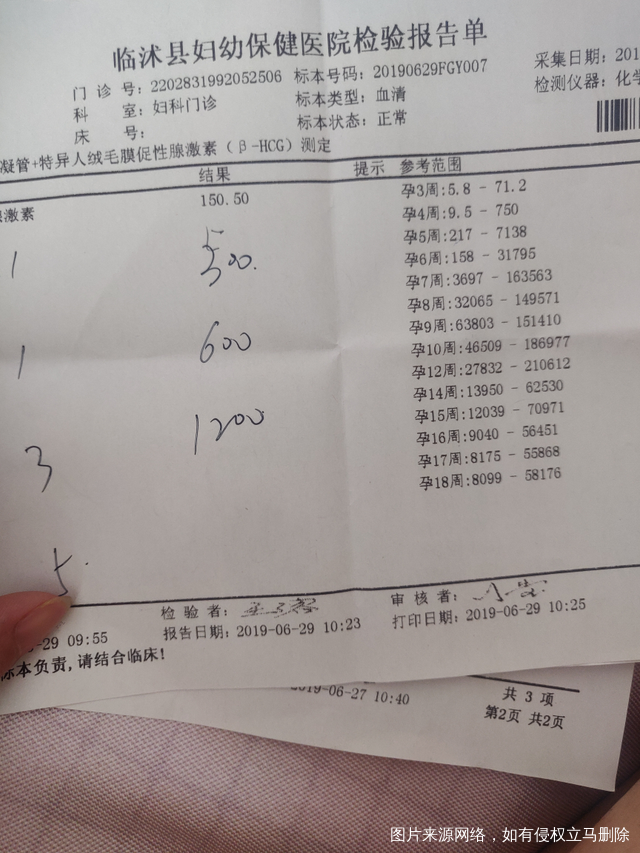 临沭县妇幼保健医院检验报告单
门诊号:2202831992052506 标本号码:20190629FGY007 采集日期:201
科室:妇科门诊 标本类型:血清 检测仪器:化学
床号: 标本状态:正常
凝管+特异人绒毛膜促性腺激素(β-HCG)测定
结果 提示 参考范围
腺激素 150.50 孕3周:5.8 - 71.2
孕4周:9.5 - 750
孕5周:217 - 7138
1 500.
孕6周:158 - 31795
孕7周:3697 - 163563
孕8周:32065 - 149571
孕9周:63803 - 151410
1 600
孕10周:46509 - 186977
孕12周:27832 - 210612
孕14周:13950 - 62530
3 1200
孕15周:12039 - 70971
孕16周:9040 - 56451
孕17周:8175 - 55868
孕18周:8099 - 58176
5.
检验者: 审核者:
-29 09:55 报告日期:2019-06-29 10:23 打印日期:2019-06-29 10:25
标本负责,请结合临床!
2019-06-27 10:40 共 3 项
第2页 共2页
图片来源网络,如有侵权立马删除